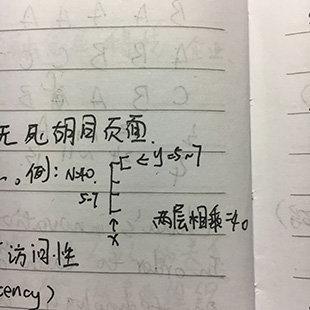 无死胡同页面
例: N=40.
← y=5~7
5~7
↑
x
两层相乘=40
访问性
tency)